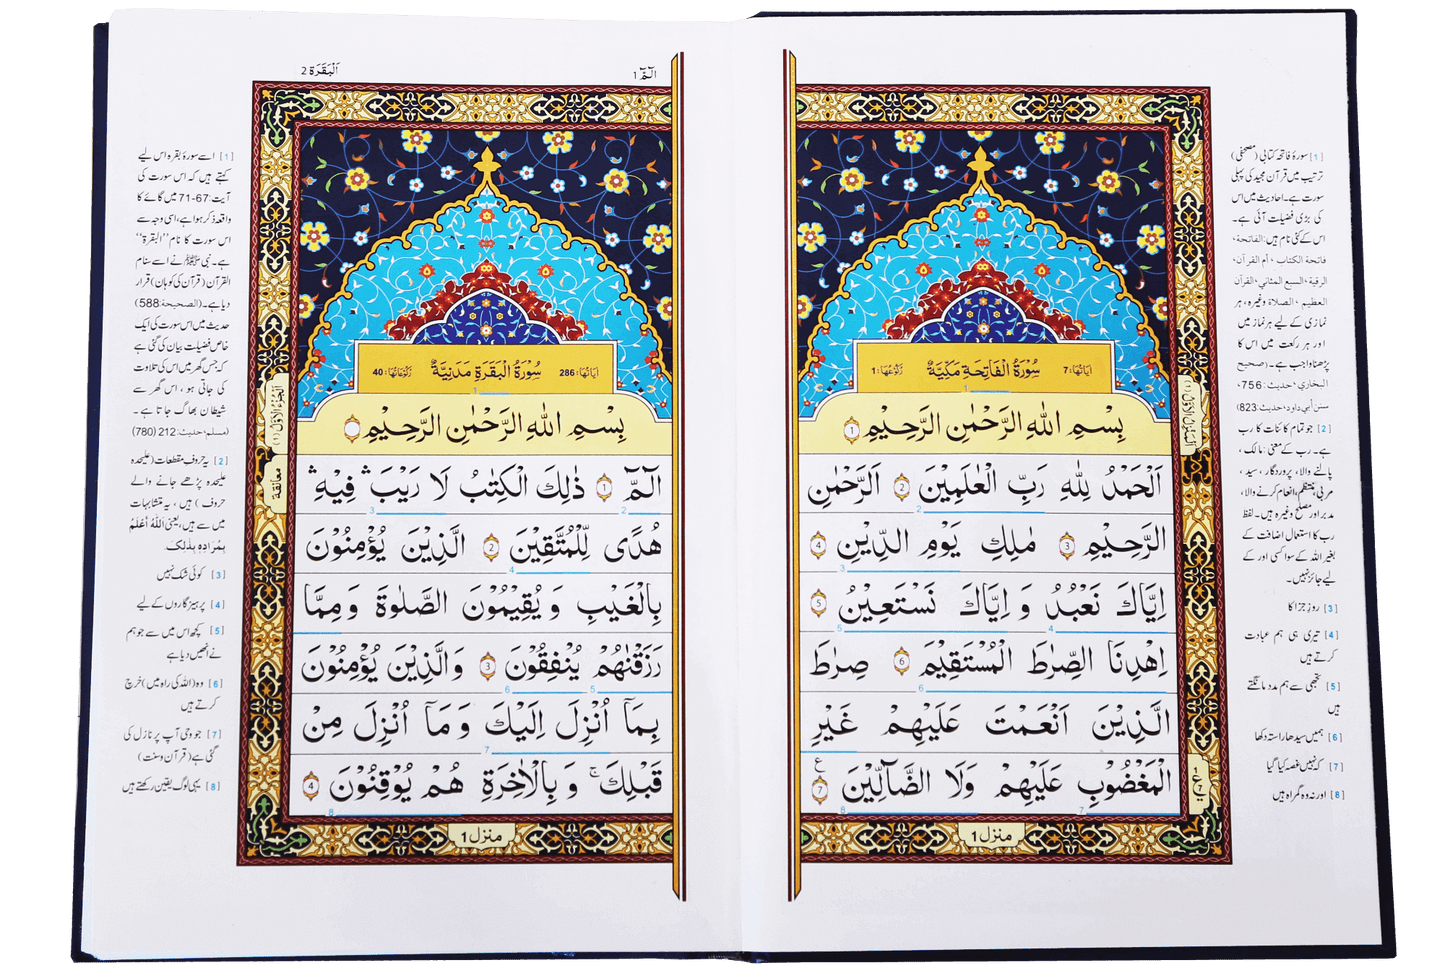 [1] سورۂ فاتحہ کتابی (مصحفی)
ترتیب میں قرآن مجید کی پہلی
سورت ہے۔ احادیث میں اس
کی بڑی فضیلت آئی ہے۔
اس کے کئی نام ہیں: الفاتحة،
فاتحة الكتاب ، أم القرآن،
الرقية، السبع المثاني، القرآن
العظيم ، الصلاة وغیرہ، ہر
نمازی کے لیے ہر نماز میں
اور ہر رکعت میں اس کا
پڑھنا واجب ہے۔ (صحیح
البخاري ، حدیث : 756،
سنن أبي داود، حدیث: 823)
[2] جو تمام کائنات کا رب
ہے۔ رب کے معنی: مالک،
پالنے والا، پروردگار، سید،
مربی، منتظم، انعام کرنے والا،
مدبر اور مصلح وغیرہ ہیں۔ لفظ
رب کا استعمال اضافت کے
بغیر اللہ کے سوا کسی اور کے
لیے جائز نہیں۔
[3] روزِ جزا کا
[4] تیری ہی ہم عبادت
کرتے ہیں
[5] تجھی سے ہم مدد مانگتے
ہیں
[6] ہمیں سیدھا راستہ دکھا
[7] کہ نہیں غصہ کیا گیا
[8] اور نہ وہ گمراہ ہیں
اٰيَاتُهَا: 7 سُوْرَةُ الْفَاتِحَةِ مَكِّيَّةٌ رُكُوْعُهَا: 1
1
بِسْمِ اللّٰهِ الرَّحْمٰنِ الرَّحِيْمِ 1
اَلْحَمْدُ لِلّٰهِ رَبِّ الْعٰلَمِيْنَ 2 الرَّحْمٰنِ
2
الرَّحِيْمِ 3 مٰلِكِ يَوْمِ الدِّيْنِ 4
3
اِيَّاكَ نَعْبُدُ وَ اِيَّاكَ نَسْتَعِيْنُ 5
4 5
اِهْدِنَا الصِّرٰطَ الْمُسْتَقِيْمَ 6 صِرٰطَ
6
الَّذِيْنَ اَنْعَمْتَ عَلَيْهِمْ غَيْرِ
الْمَغْضُوْبِ عَلَيْهِمْ وَلَا الضَّآلِّيْنَ 7 ع
7 8
منزل 1
الٓمّٓ 1
اَلْبَقَرَة 2
اَلْجُزْءُ الْاَوَّلُ (1)
معانقة
اٰيَاتُهَا: 286 سُوْرَةُ الْبَقَرَةِ مَدَنِيَّةٌ رُكُوْعَاتُهَا: 40
1
بِسْمِ اللّٰهِ الرَّحْمٰنِ الرَّحِيْمِ
الٓمّٓ 1 ذٰلِكَ الْكِتٰبُ لَا رَيْبَ ۛ فِيْهِ ۛ
2 3
هُدًى لِّلْمُتَّقِيْنَ 2 الَّذِيْنَ يُؤْمِنُوْنَ
4
بِالْغَيْبِ وَ يُقِيْمُوْنَ الصَّلٰوةَ وَ مِمَّا
رَزَقْنٰهُمْ يُنْفِقُوْنَ 3 وَ الَّذِيْنَ يُؤْمِنُوْنَ
5 6
بِمَآ اُنْزِلَ اِلَيْكَ وَ مَآ اُنْزِلَ مِنْ
7
قَبْلِكَ ۚ وَ بِالْاٰخِرَةِ هُمْ يُوْقِنُوْنَ 4
8
منزل 1
[1] اسے سورۂ بقرہ اس لیے
کہتے ہیں کہ اس سورت کی
آیت: 67-71 میں گائے کا
واقعہ ذکر ہوا ہے، اسی وجہ سے
اس سورت کا نام "البقرة"
ہے۔ نبی ﷺ نے اسے سنام
القرآن (قرآن کی کوہان) قرار
دیا ہے۔ (الصحيحة: 588)
حدیث میں اس سورت کی ایک
خاص فضیلت بیان کی گئی ہے
کہ جس گھر میں اس کی تلاوت
کی جاتی ہو، اس گھر سے
شیطان بھاگ جاتا ہے۔
(مسلم، حدیث: 212 (780)
[2] یہ حروف مقطعات (علیحدہ
علیحدہ پڑھے جانے والے
حروف) ہیں، یہ متشابہات
میں سے ہیں، یعنی اَللّٰهُ أَعْلَمُ
بِمُرَادِهِ بِذٰلِكَ.
[3] کوئی شک نہیں
[4] پرہیزگاروں کے لیے
[5] کچھ اس میں سے جو ہم
نے انھیں دیا ہے
[6] وہ (اللہ کی راہ میں) خرچ
کرتے ہیں
[7] جو وحی آپ پر نازل کی
گئی ہے (قرآن و سنت)
[8] یہی لوگ یقین رکھتے ہیں